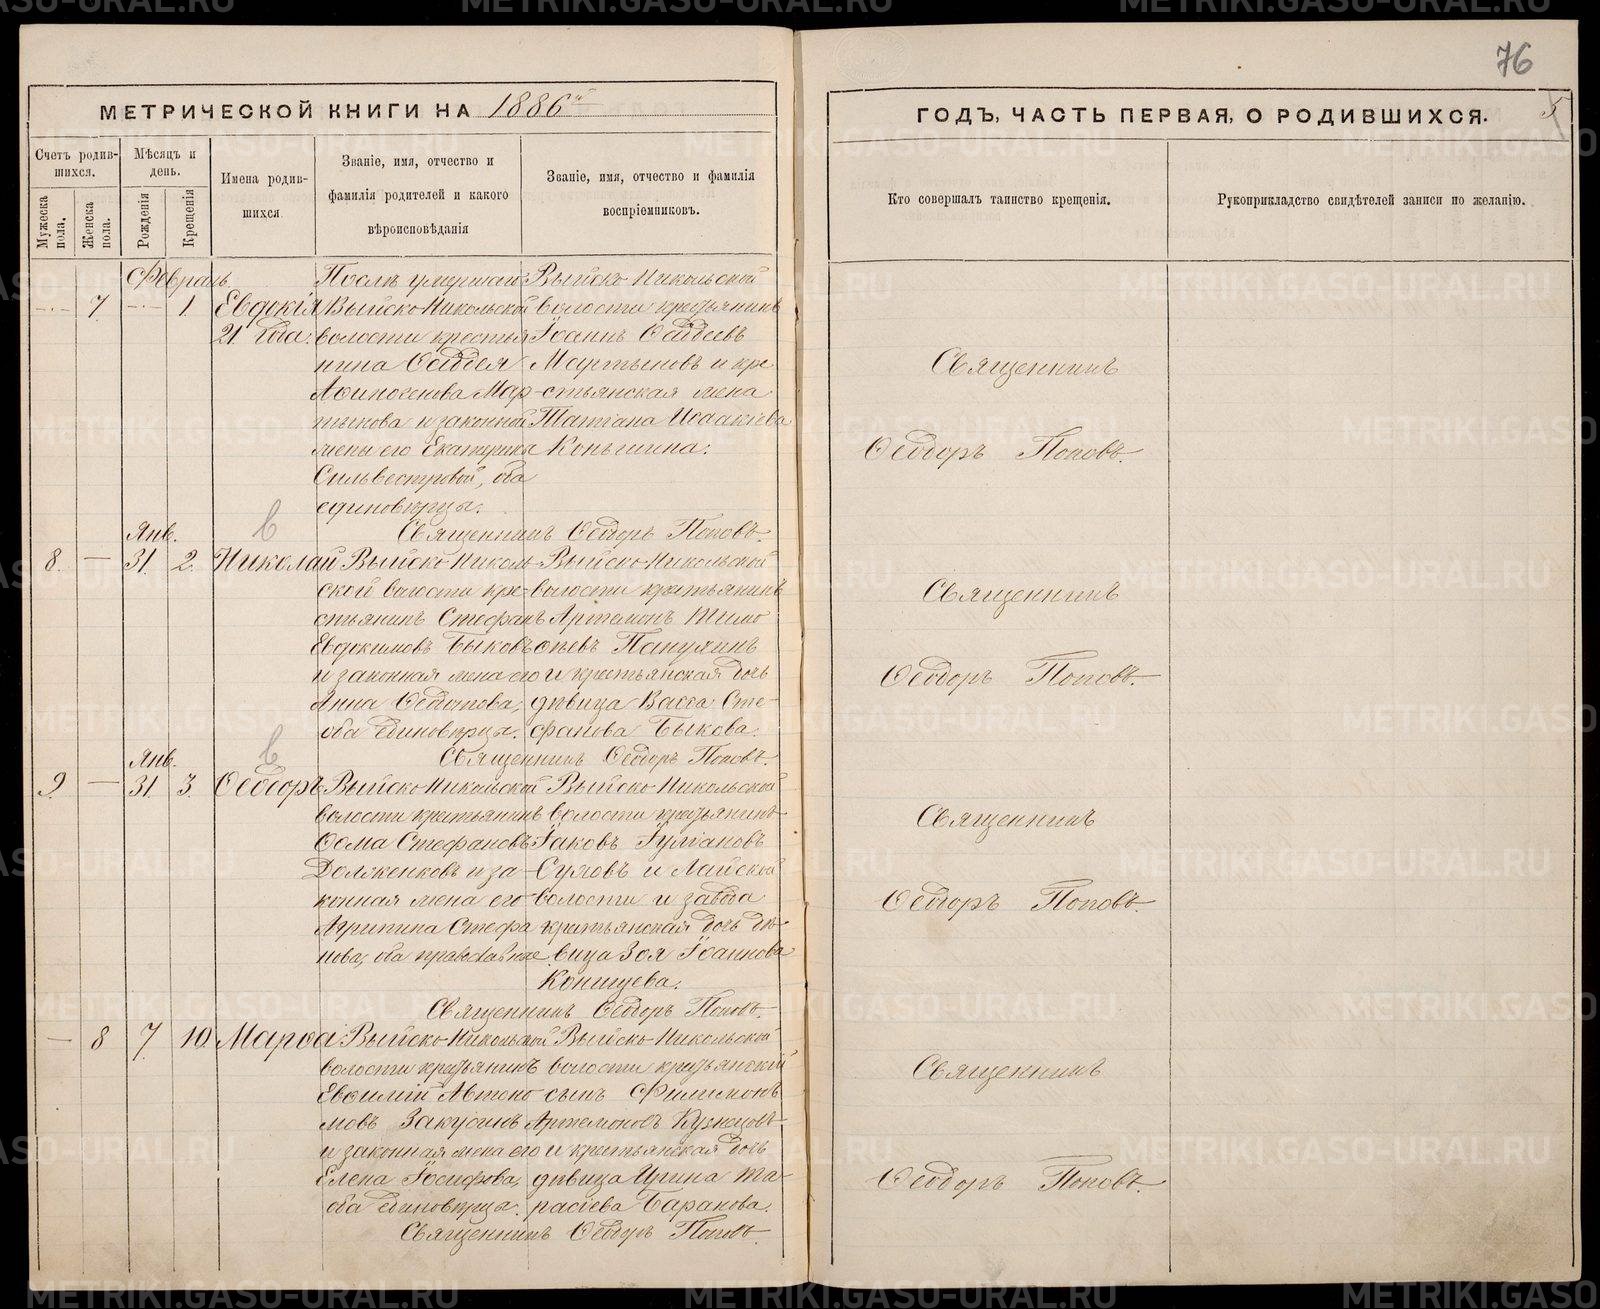 76
МЕТРИЧЕСКОЙ КНИГИ НА 1886й
ГОДЪ, ЧАСТЬ ПЕРВАЯ, О РОДИВШИХСЯ.
5
Счетъ родив-
шихся.
Мужеска пола.
Женска пола.
Мѣсяцъ и
день.
Рожденія
Крещенія
Имена родив-
шихся
Званіе, имя, отчество и
фамилія родителей и какого
вѣроисповѣданія
Званіе, имя, отчество и фамилія
воспріемниковъ.
Кто совершалъ таинство крещенія.
Рукоприкладство свидѣтелей записи по желанію.
Февраль
7 1 Евдокія
21 года.
Послѣ умершаго
Выйско-Никольской
волости крестья
нина Ѳаддея
Аѳиногенова Мар-
тынова и законной
жены его Екатерина
Сильвестровой, оба
единовѣрцы.
Выйско-Никольской
волости крестьянинъ
Іоаннъ Ѳаддеевъ
Мартыновъ и кре
стьянская жена
Татіана Исаакіева
Коньшина.
Священникъ
Ѳеодоръ Поповъ.
Священникъ Ѳеодоръ Поповъ.
Янв.
8. — 31. 2. Николай
Выйско-Николь-
ской волости кре-
стьянинъ Стефанъ
Евдокимовъ Быковъ
и законная жена его
Анна Ѳеодотова,
оба единовѣрцы.
Выйско-Никольской
волости крестьянинъ
Артемонъ Тимо
ѳеевъ Панухинъ
и крестьянская дочь
дѣвица Васса Сте-
фанова Быкова.
Священникъ
Ѳеодоръ Поповъ.
Священникъ Ѳеодоръ Поповъ.
Янв.
9. — 31. 3. Ѳеодоръ
Выйско-Никольской
волости крестьянинъ
Ѳома Стефановъ
Долженковъ и за-
конная жена его
Агрипина Стефа
нова, оба православные
Выйско-Никольской
волости крестьянинъ
Іаковъ Іуліановъ
Суховъ и Лайской
волости и завода
крестьянская дочь дѣ-
вица Зоя Іоаннова
Конищева.
Священникъ
Ѳеодоръ Поповъ.
Священникъ Ѳеодоръ Поповъ.
— 8 7. 10. Марѳа
Выйско-Никольской
волости крестьянинъ
Евѳимій Автоно
мовъ Закусинъ
и законная жена его
Елена Іосифова,
оба единовѣрцы.
Выйско-Никольской
волости крестьянскій
сынъ Филимонъ
Артемоновъ Кузнецовъ
и крестьянская дочь
дѣвица Ирина Та-
расіева Баранова.
Священникъ
Ѳеодоръ Поповъ.
Священникъ Ѳеодоръ Поповъ.
METRIKI.GASO-URAL.RU